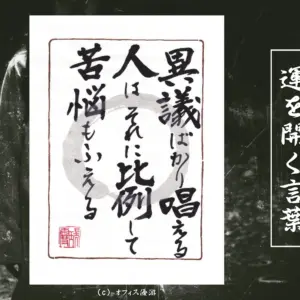 運を開く言葉
異議ばかり唱える
人はそれに比例して
苦悩もふえる
(c)-オフィス優沼